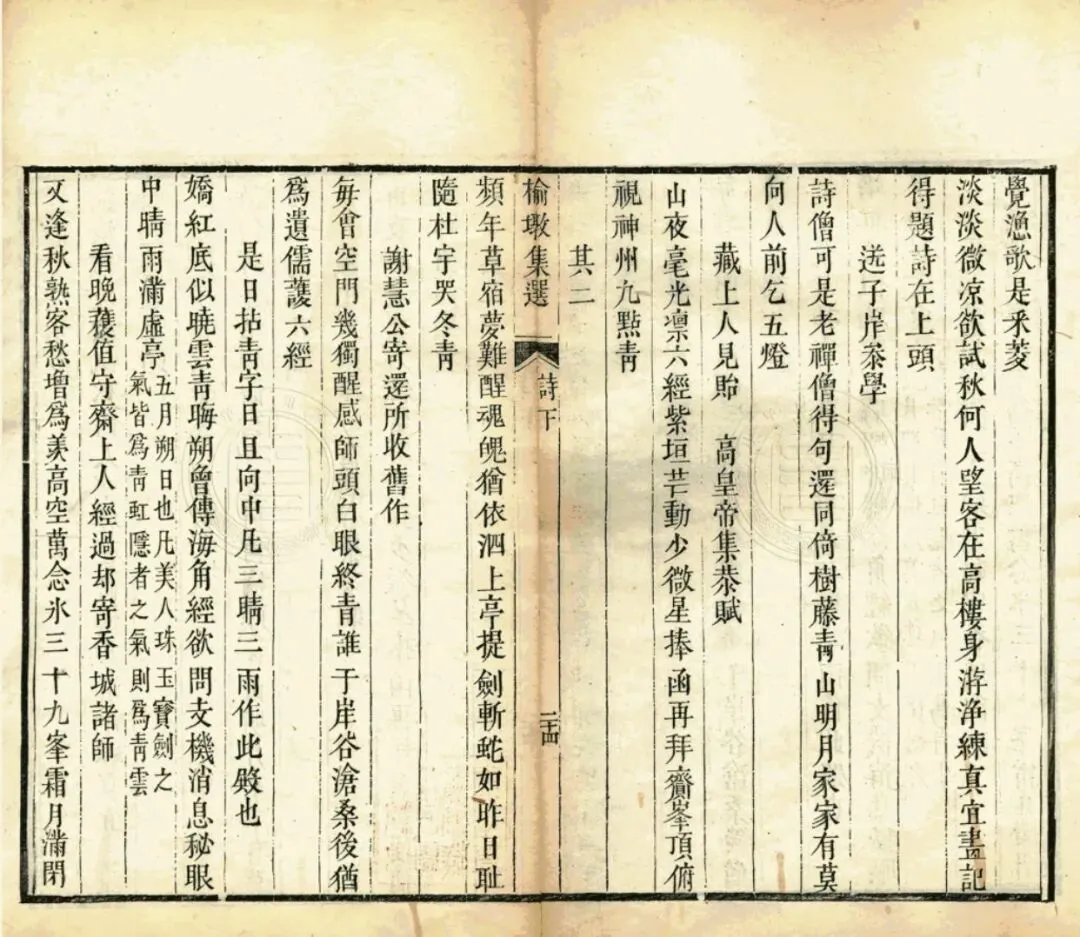 覺漁歌是釆菱
淡淡微凉欲試秋何人望客在高樓身游浄練真宜畫記
得題詩在上頭
送子岸叅學
詩僧可是老禪僧得句還同倚樹藤青山明月家家有莫
向人前乞五燈
藏上人見貽　高皇帝集恭賦
山夜毫光凛六經紫垣芒動少微星捧函再拜齋峯頂俯
視神州九點青
其二
榆墩集選　詩下　二十四
頻年草宿夢難醒魂魄猶依泗上亭提劍斬蛇如昨日耻
隨杜宇哭冬青
謝慧公寄還所收舊作
每會空門幾獨醒感師頭白眼終青誰于岸谷滄桑後猶
爲遺儒護六經
是日拈青字日且向中凡三晴三雨作此殿也
嬌紅底似曉雲青晦朔曾傳海角經欲問支機消息秘眼
中晴雨滿虛亭五月朔日也凡美人珠玉寶劍之
氣皆爲青虹隱者之氣則爲青雲
看晚穫值守齋上人經過却寄香城諸師
又逢秋熟客愁增爲羨高空萬念氷三十九峯霜月滿閉